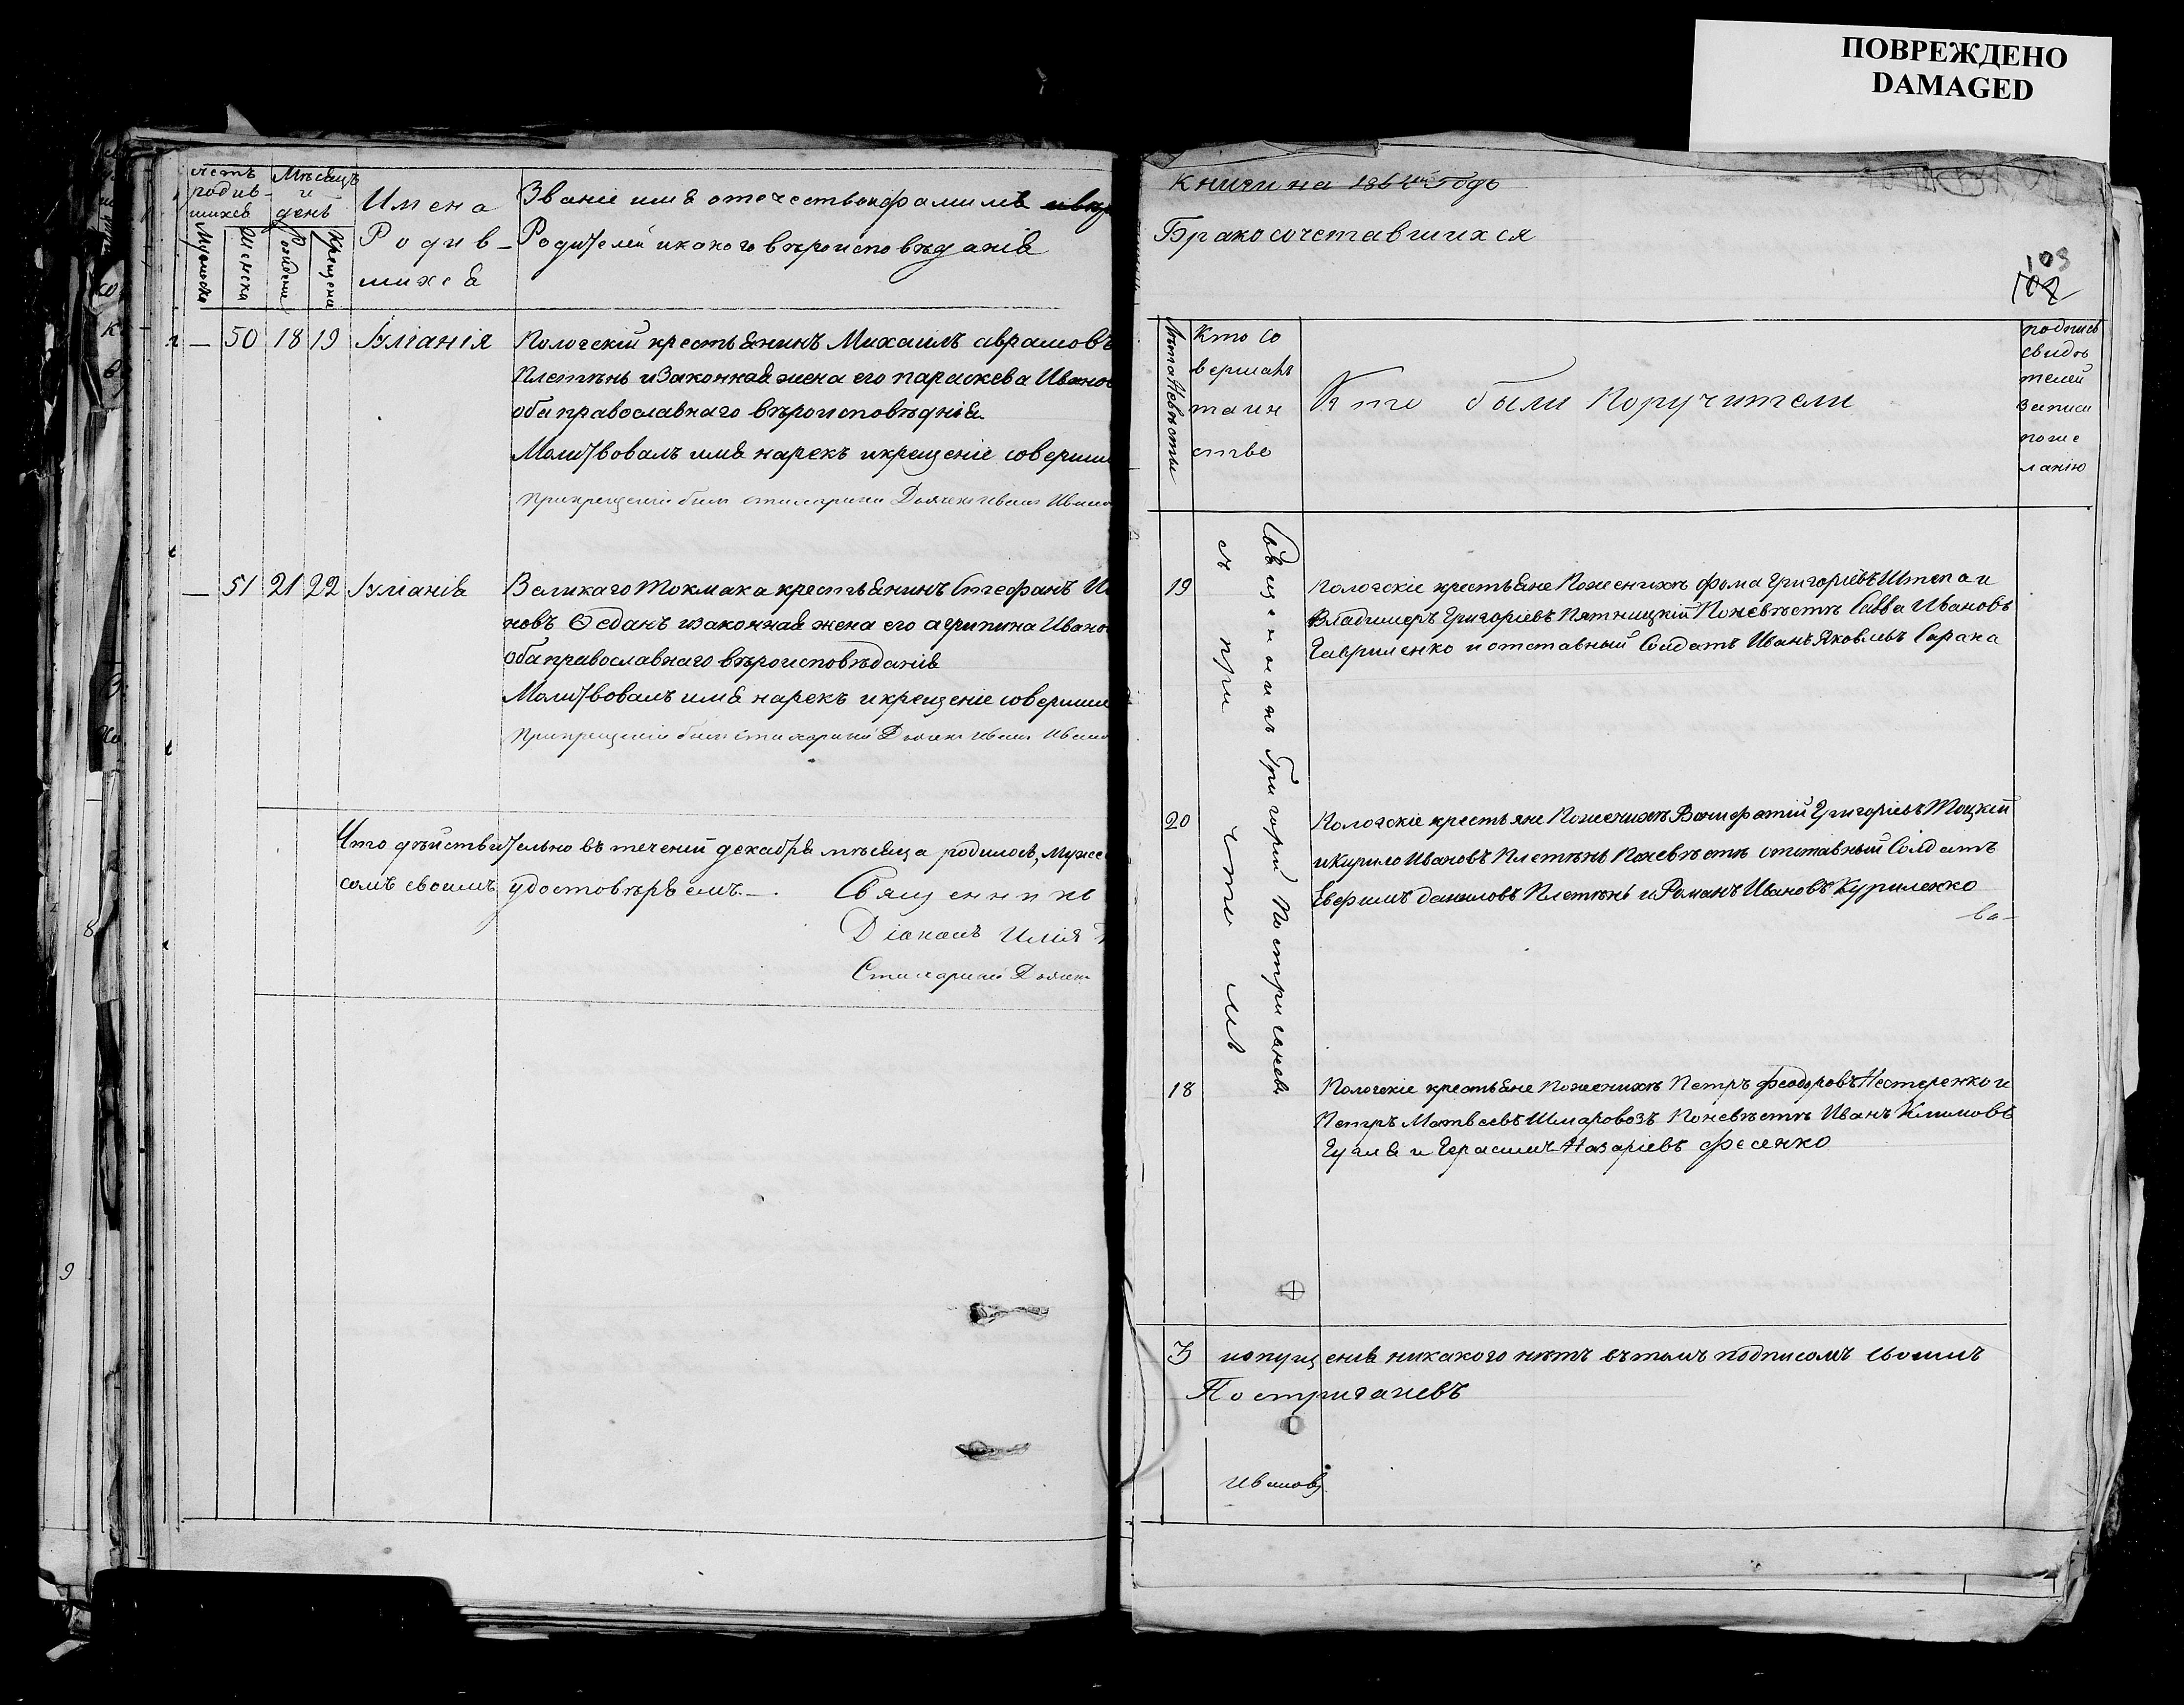 ПОВРЕЖДЕНО
DAMAGED
родив-
шихся
Мужеска
Женска
Мѣсяцъ
и
день
Рожденія
Крещенія
Имена
Родив-
шихся
Званіе имя отечество и фамилія
Родителей и какого вѣроисповѣданія
— 50 18 19 Іуліанія
Пологскій крестьянинъ Михаилъ аврамовъ
Плетѣнь и законная жена его параскева Иванов
оба православнаго вѣроисповѣднія
Молитвовалъ имя нарекъ и крещеніе соверши
При крещеніи былъ стихарный Дьячекъ Иванъ Ивано
— 51 21 22 Іуліанія
Великаго Токмака крестьянинъ Стефанъ И
новъ Ѳеданъ и законная жена его агрипина Ивано
оба православнаго вѣроисповѣданія
Молитвовалъ имя нарекъ и крещеніе соверши
При крещеніи былъ стихарный Дьячекъ Иванъ Ивано
Что дѣйствительно въ теченіи декабря мѣсяца родилось, Мужес
сомъ своимъ удостовѣряемъ —. Священникъ
Діаконъ Илія
Стихарный Дьячек
Книги на Годъ
Бракосочетавшихся
103
102
Лѣта Невѣсты
Кто со
вершалъ
таин
ство
Кто были Поручители
подпись
свидѣ
телей
записи
по же
ланію
Священникъ Григорій Постриганевъ
съ причтомъ
19
Пологскіе крестьяне По женихѣ фома Григоріевъ Штепа и
Владимеръ Григоріевъ Пятницкій По невѣстѣ Савва Ивановъ
Гавриленко и отставный Солдатъ Иванъ Яковлевъ Сарана
20
Пологскіе крестьяне По женихѣ Вонифатій Григоріевъ Тоцкій
и Кирило Ивановъ Плетѣнь По невѣстѣ отставный Солдатъ
Евфимъ даниловъ Плетѣнь и Романъ Ивановъ Куриленко
18
Пологскіе крестьяне По женихѣ Петръ феодоровъ Нестеренко и
Петръ Матвеевъ Шмаровозъ По невѣстѣ Иванъ Климовъ
Гугля и Герасимъ Назаріевъ Фесенко
3 и опущенія никакого нѣтъ въ томъ подписомъ своимъ
Постриганевъ
Ивановъ
8
9